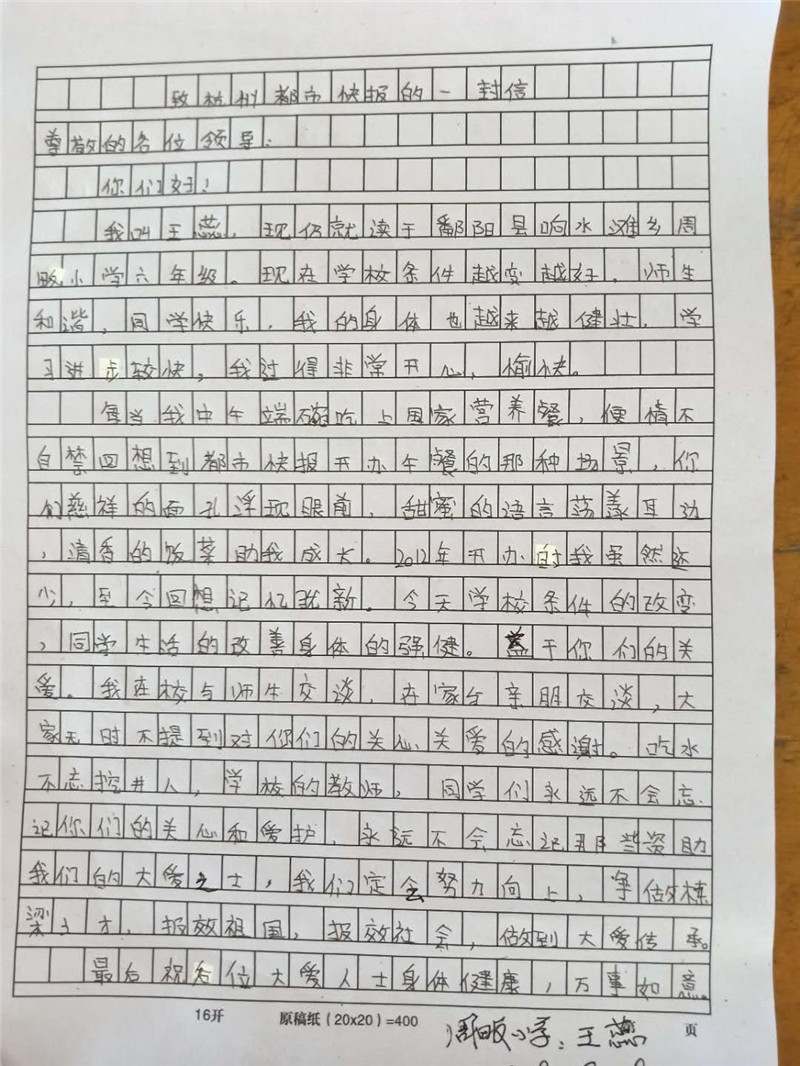 致杭州都市快报的一封信
尊敬的各位领导:
你们好!
我叫王蕊，现仍就读于鄱阳县响水滩乡周
畈小学六年级。现在学校条件越变越好，师生
和谐，同学快乐，我的身体也越来越健壮，学
习进步较快，我过得非常开心、愉快。
每当我中午端碗吃上国家营养餐，便情不
自禁回想到都市快报开办午餐的那种场景，你
们慈祥的面孔浮现眼前，甜蜜的语言荡漾耳边
，清香的饭菜助我成长。2012年开办时我虽然还
少，至今回想记忆犹新。今天学校条件的改变
，同学生活的改善身体的强健。于你们的关
爱。我在校与师生交谈，在家与亲朋交谈，大
家无时不提到对你们的关心关爱的感谢。吃水
不忘挖井人，学校的教师，同学们永远不会忘
记你们的关心和爱护，永远不会忘记那些资助
我们的大爱之士，我们定会努力向上，争做栋
梁之才，报效祖国，报效社会，做到大爱传承。
最后祝各位大爱人士身体健康，万事如意。
16开 原稿纸(20x20)=400 页
周畈小学：王蕊